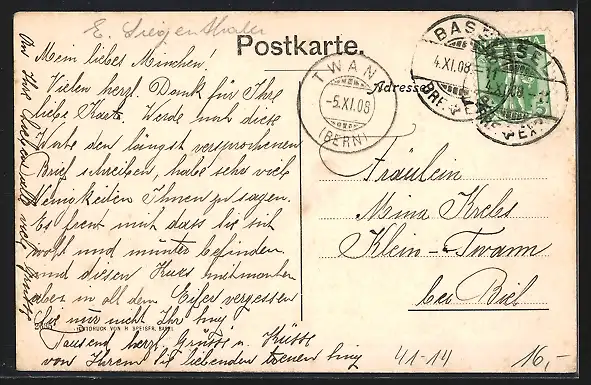 E. Siegenthaler
Postkarte.
Adresse
BASEL
4.XI.08
BRF. EXP.
BASEL
4.XI.08
BRF. EXP.
TWAN
-5.XI.08
(BERN)
Mein liebes Minchen!
Vielen herzl. Dank für Ihre
liebe Karte. Werde
den längst versprochenen
Brief schreiben, habe sehr viele
Neuigkeiten Ihnen zu sagen.
Es freut mich dass Sie sich
wohl und munter befinden
und diesen Kurs mitmachen
aber in all dem Eifer vergessen
Sie mir nicht Ihr
Tausend herzl. Grüsse u. Küsse
von Ihrem Sie liebenden treuen
LICHTDRUCK VON H. SPEISER, BASEL
Fräulein
Mina Krebs
Klein-Twann
bei Biel
41-14
16,-